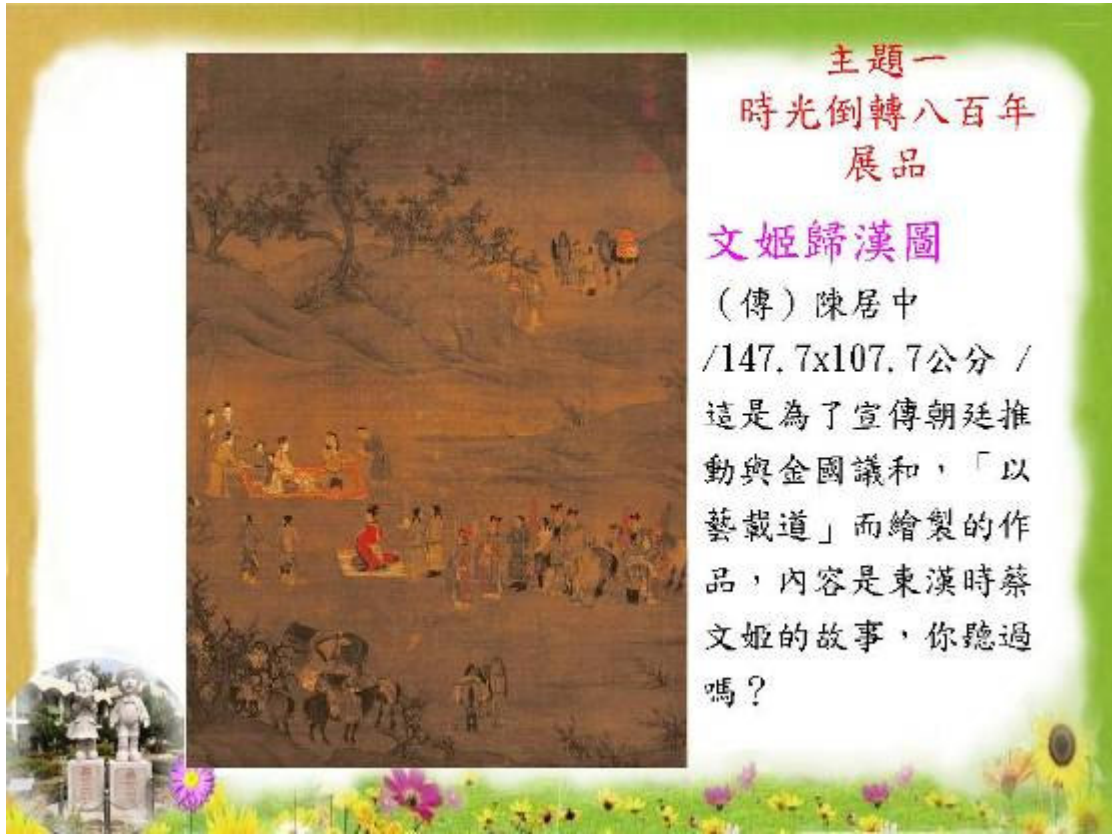 主題一
時光倒轉八百年
展品
文姬歸漢圖
（傳）陳居中
/147.7x107.7公分 /
這是為了宣傳朝廷推
動與金國議和，「以
藝載道」而繪製的作
品，內容是東漢時蔡
文姬的故事，你聽過
嗎？